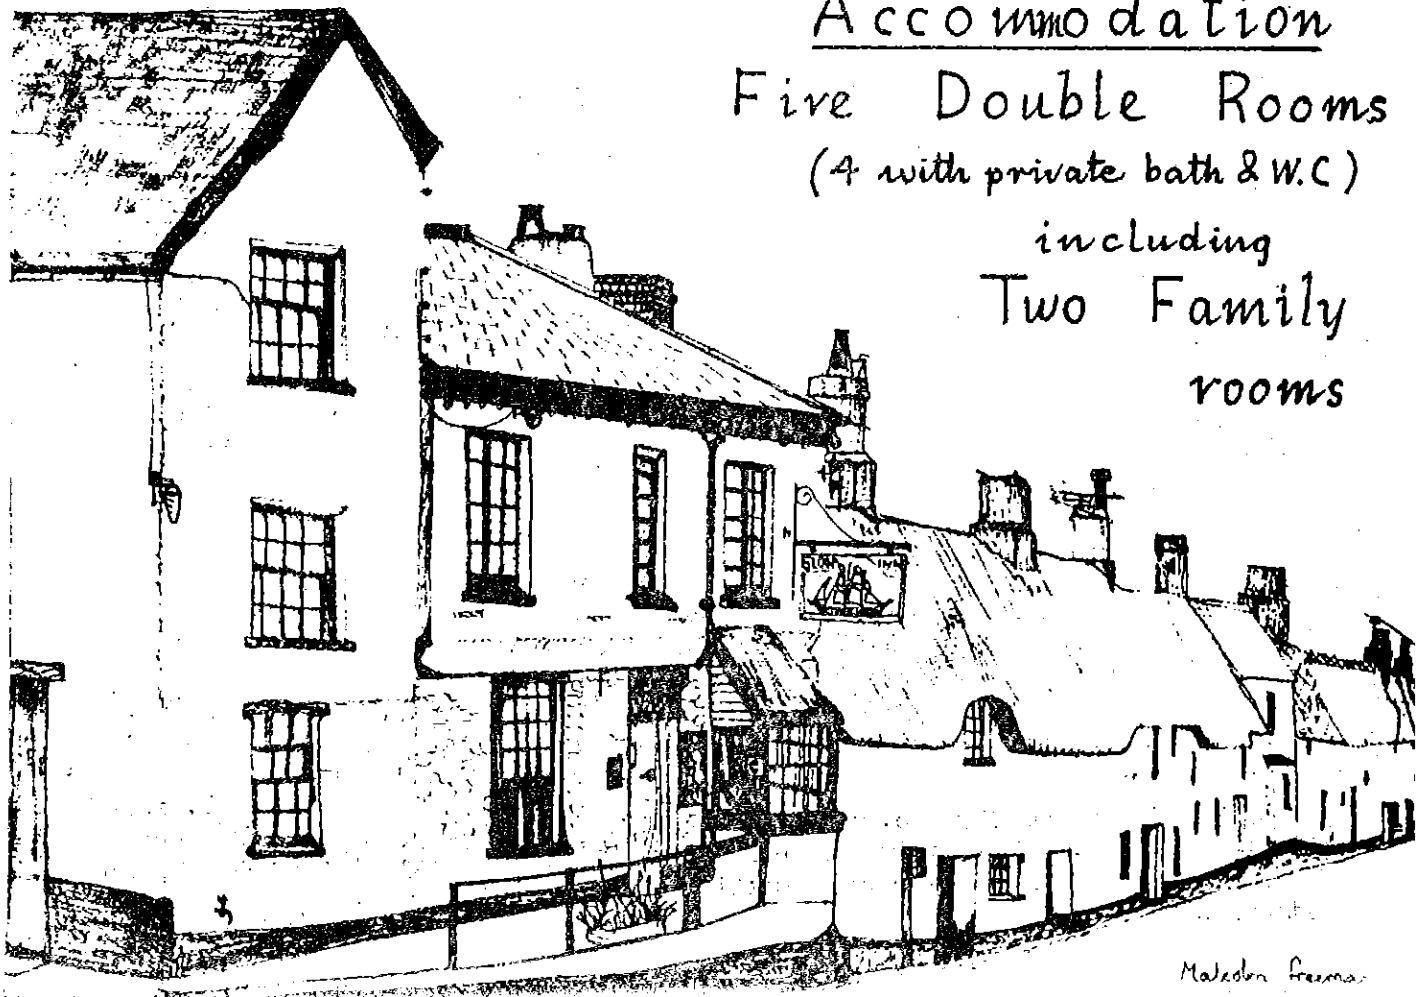 Accommodation
Five Double Rooms
(4 with private bath & W.C)
including
Two Family
rooms
Malcolm